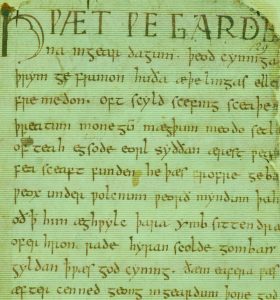 HǷÆT ǷE GARDE
na ingear dagum. þeod cyninga
þrym ge frunon huða æþelingas elle
fre medon. oft scyld scefing sceaþe
þreatum monegū mægþum meodo setl
of teah egsode eorl syððan ærest ƿea
fea sceaft funden he þæs frofre geba
ƿeox under ƿolcnum ƿeorð myndum þah
oð ꝥ him æghƿylc þara ymb sittendra
ofer hron rade hyran scolde gomban
gyldan ꝥ ƿæs god cyning. ðæm eafera ƿæs
æfter cenned geong in geardum þone god